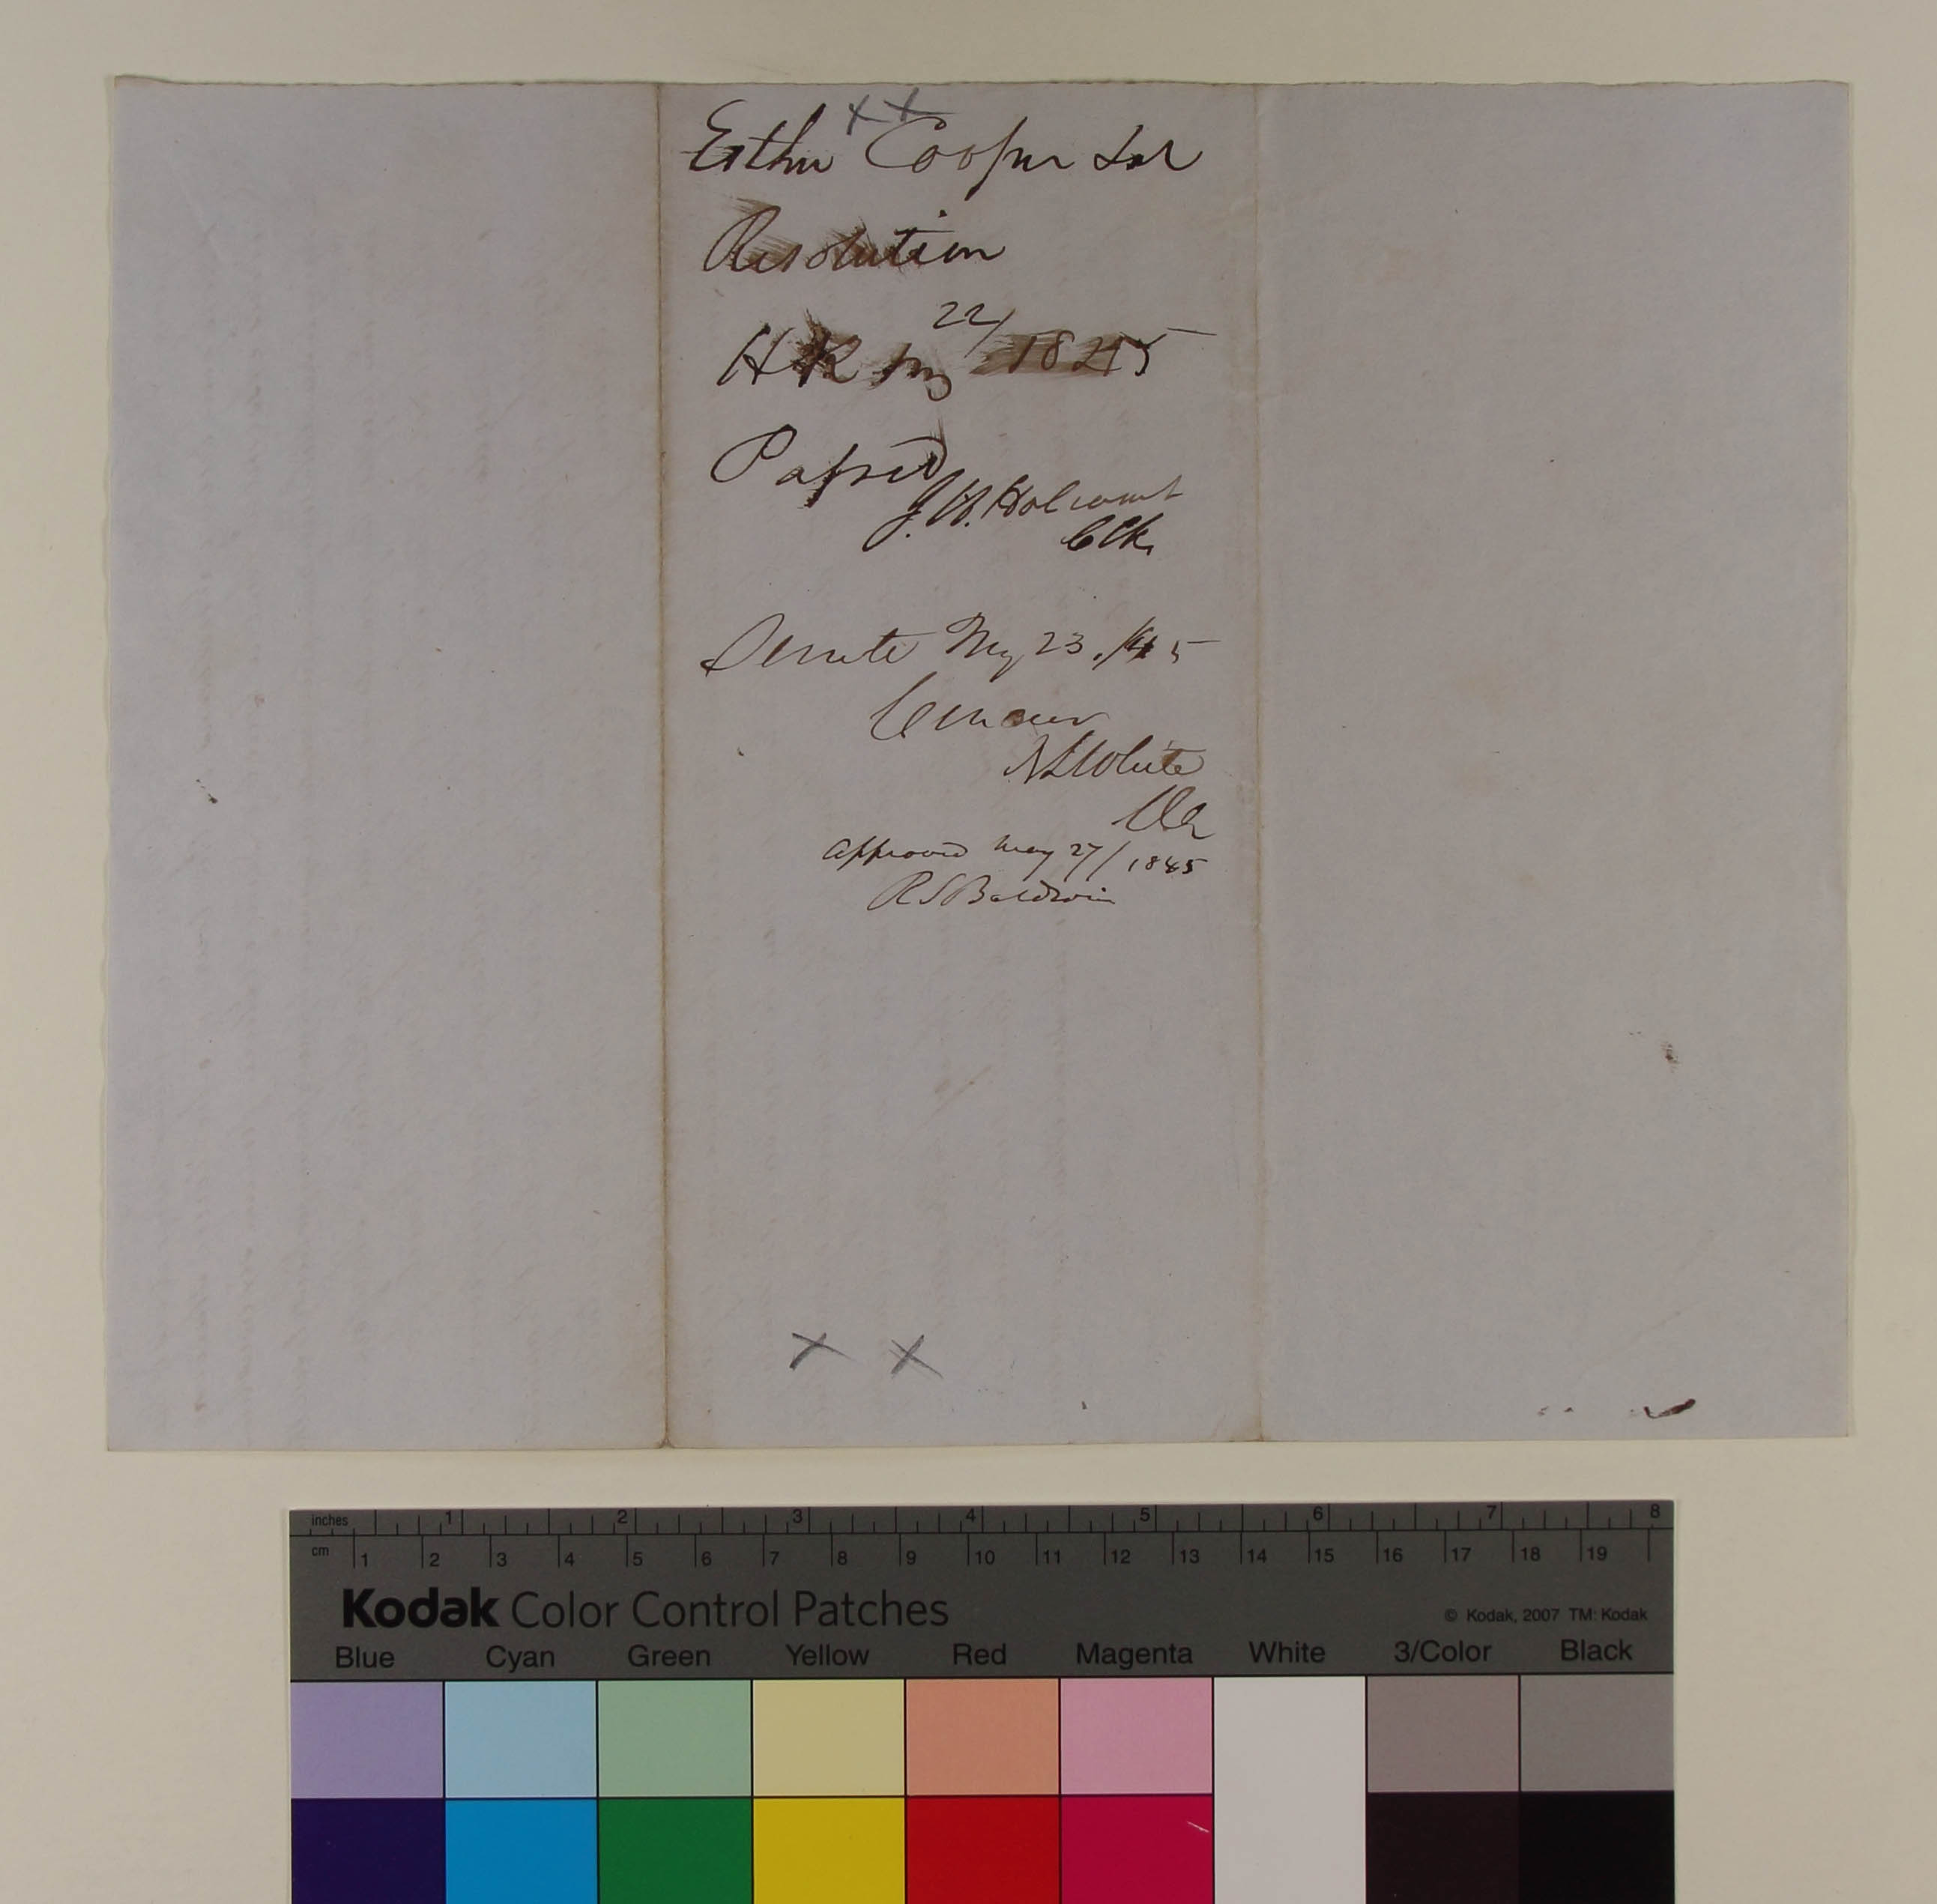 x x
Esther Cooper Ind
Resolution
HR My 22/ 1845
Passed
J. H. Holcomb
Clk.
Senate My 23./45
Concur
N L White
Clk
Approved May 27/ 1845
R S Baldwin
x x
inches 1 2 3 4 5 6 7 8
cm 1 2 3 4 5 6 7 8 9 10 11 12 13 14 15 16 17 18 19
Kodak Color Control Patches
© Kodak, 2007 TM: Kodak
Blue Cyan Green Yellow Red Magenta White 3/Color Black